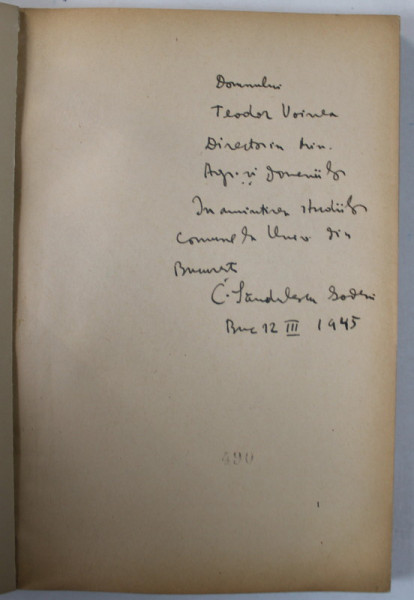 Domnului
Teodor Voinea
Director in Min.
Agr. și Domeniilor
In amintirea studiilor
comune la Univ. din
București
C. Săndulescu Godeni
Buc 12 III 1945
490